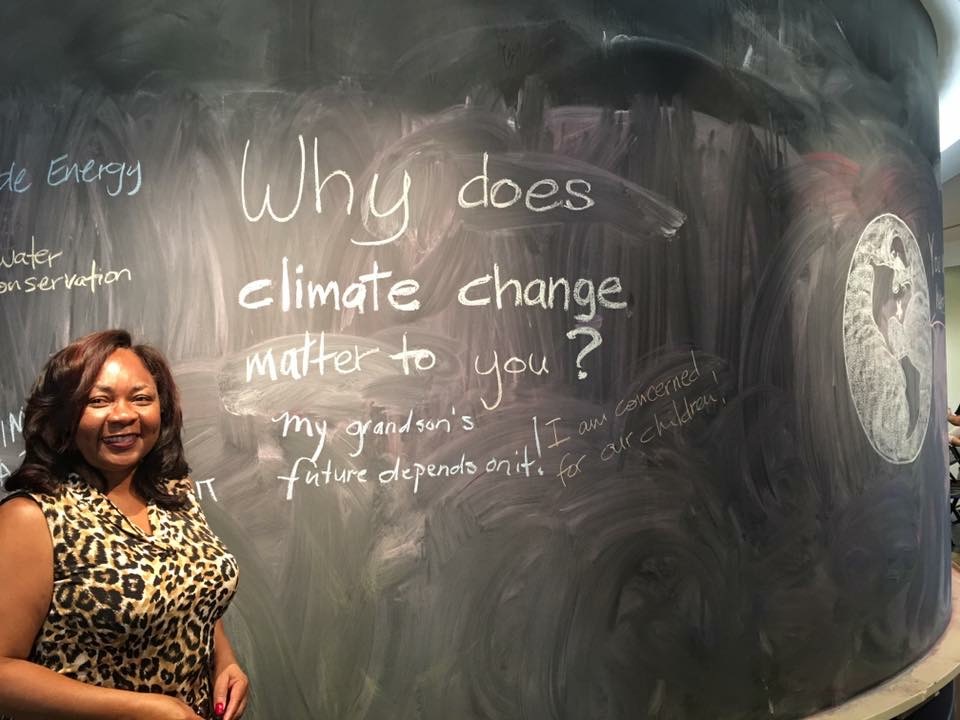 de Energy
Water
onservation
Why does
climate change
matter to you?
My grandson's
future depends on it!
I am concerned
for our children!
IN
IT